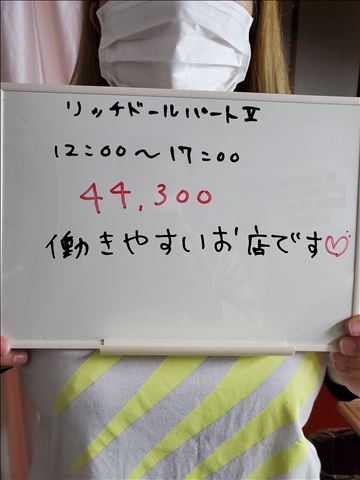 リッチドールパートⅡ
12:00〜17:00
44,300
働きやすいお店です♡